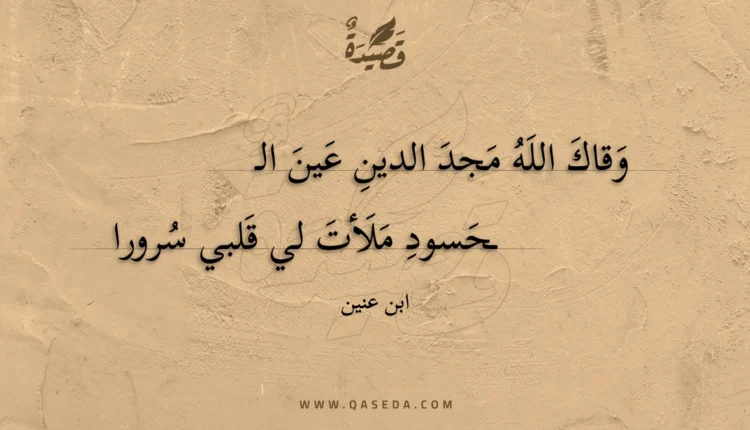 قَصِيدَةٌ
وَقاكَ اللَهُ مَجدَ الدينِ عَينَ الـ
ـحَسودِ مَلَأتَ لي قَلبي سُرورا
ابن عنين
WWW.QASEDA.COM